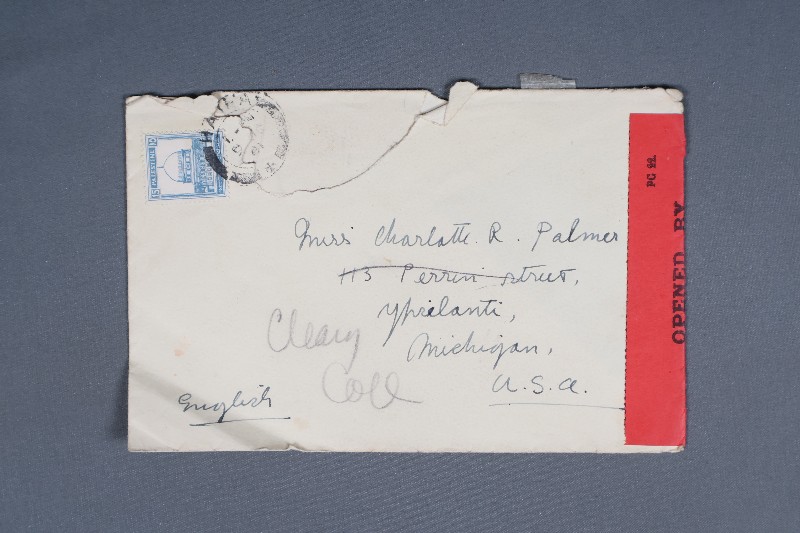 PALESTINE
15
Miss Charlotte. R. Palmer
113 Perrin street,
Ypsilanti,
Michigan,
U.S.A.
Cleary
Coll
English
PC 22.
OPENED BY